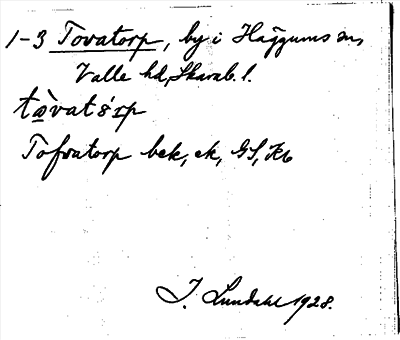 1-3 Tovatorp, by i Häggums sn,
Valle hd, Skarab. l.
tà̤vatɷrp
Tofvatorp bek, ek, GS, Kb
I. Lundahl 1928.